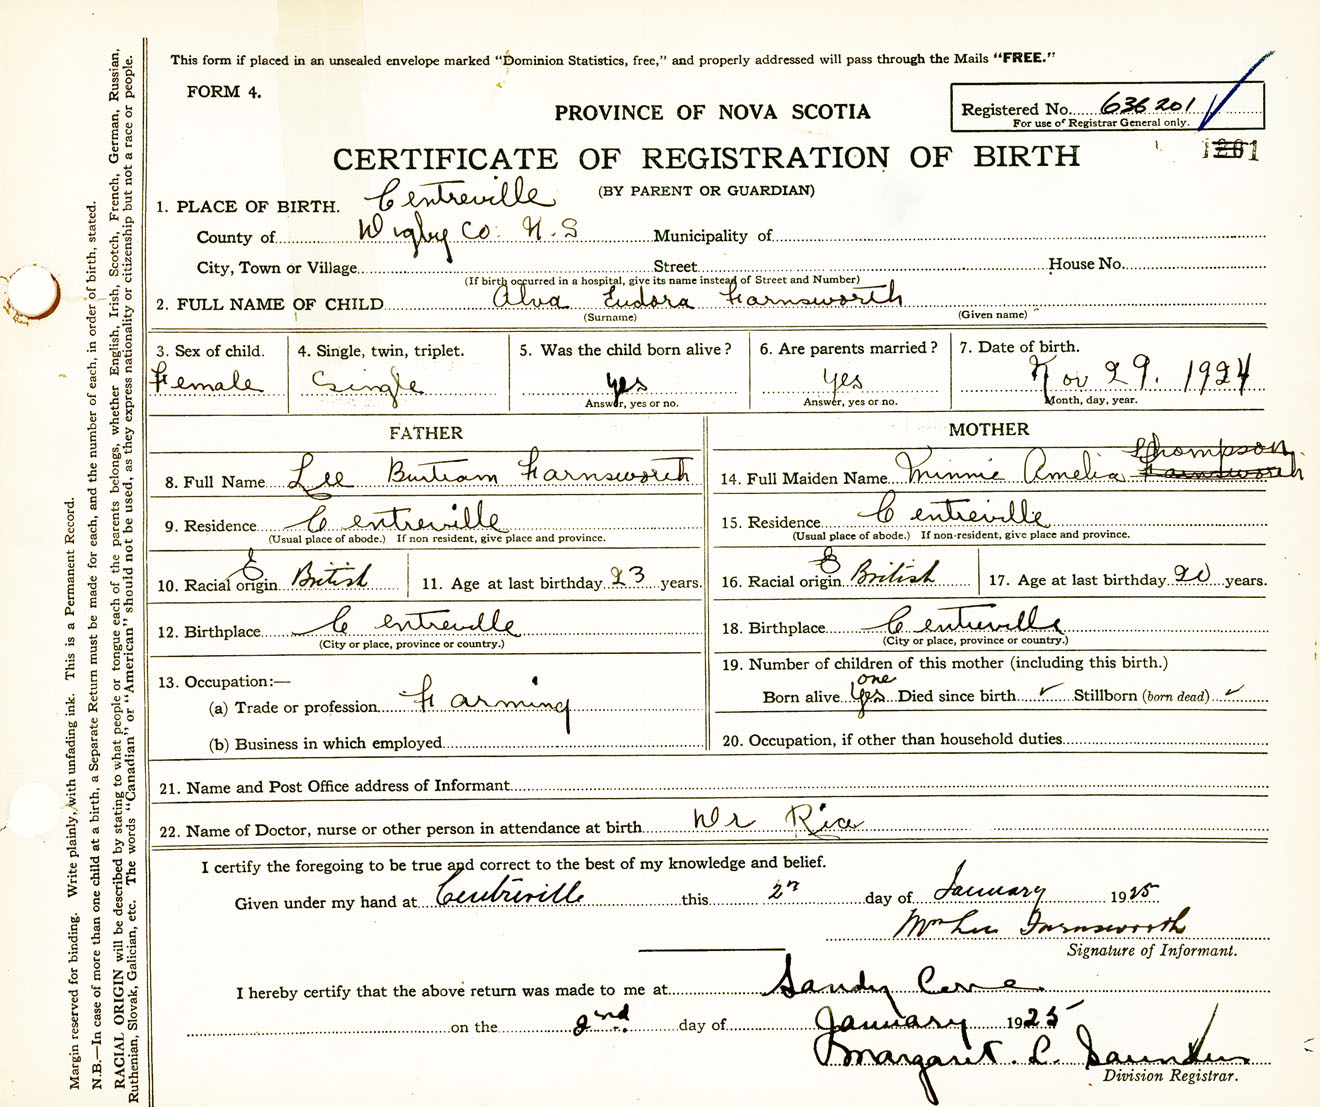 This form if placed in an unsealed envelope marked "Dominion Statistics, free," and properly addressed will pass through the Mails "FREE."
FORM 4.
PROVINCE OF NOVA SCOTIA
Registered No. 636201
For use of Registrar General only.
CERTIFICATE OF REGISTRATION OF BIRTH
1201
(BY PARENT OR GUARDIAN)
1. PLACE OF BIRTH. Centreville
County of Digby Co. N.S Municipality of
City, Town or Village Street House No.
(If birth occurred in a hospital, give its name instead of Street and Number)
2. FULL NAME OF CHILD Alva Eudora Farnsworth
(Surname) (Given name)
3. Sex of child. 4. Single, twin, triplet. 5. Was the child born alive? 6. Are parents married? 7. Date of birth.
Female Single yes yes Nov 29. 1924
Answer, yes or no. Answer, yes or no. Month, day, year.
FATHER
8. Full Name Lee Burtram Farnsworth
9. Residence Centreville
(Usual place of abode.) If non resident, give place and province.
E
10. Racial origin British 11. Age at last birthday 23 years.
12. Birthplace Centreville
(City or place, province or country.)
13. Occupation:—
(a) Trade or profession Farming
(b) Business in which employed
MOTHER
Thompson
14. Full Maiden Name Minnie Amelia Farnsworth
15. Residence Centreville
(Usual place of abode.) If non-resident, give place and province.
E
16. Racial origin British 17. Age at last birthday 20 years.
18. Birthplace Centreville
(City or place, province or country.)
19. Number of children of this mother (including this birth.)
one
Born alive Yes Died since birth ✓ Stillborn (born dead) ✓
20. Occupation, if other than household duties
21. Name and Post Office address of Informant
22. Name of Doctor, nurse or other person in attendance at birth Dr Rice
I certify the foregoing to be true and correct to the best of my knowledge and belief.
Given under my hand at Centreville this 2n day of January 1925
Mrs Lee Farnsworth
Signature of Informant.
I hereby certify that the above return was made to me at Sandy Cove
on the 2nd day of January 1925
Margaret L. Saunders
Division Registrar.
Margin reserved for binding. Write plainly, with unfading ink. This is a Permanent Record.
N.B.—In case of more than one child at a birth, a Separate Return must be made for each, and the number of each, in order of birth, stated.
RACIAL ORIGIN will be described by stating to what people or tongue each of the parents belongs, whether English, Irish, Scotch, French, German, Russian,
Ruthenian, Slovak, Galician, etc. The words "Canadian" or "American" should not be used, as they express nationality or citizenship but not a race or people.